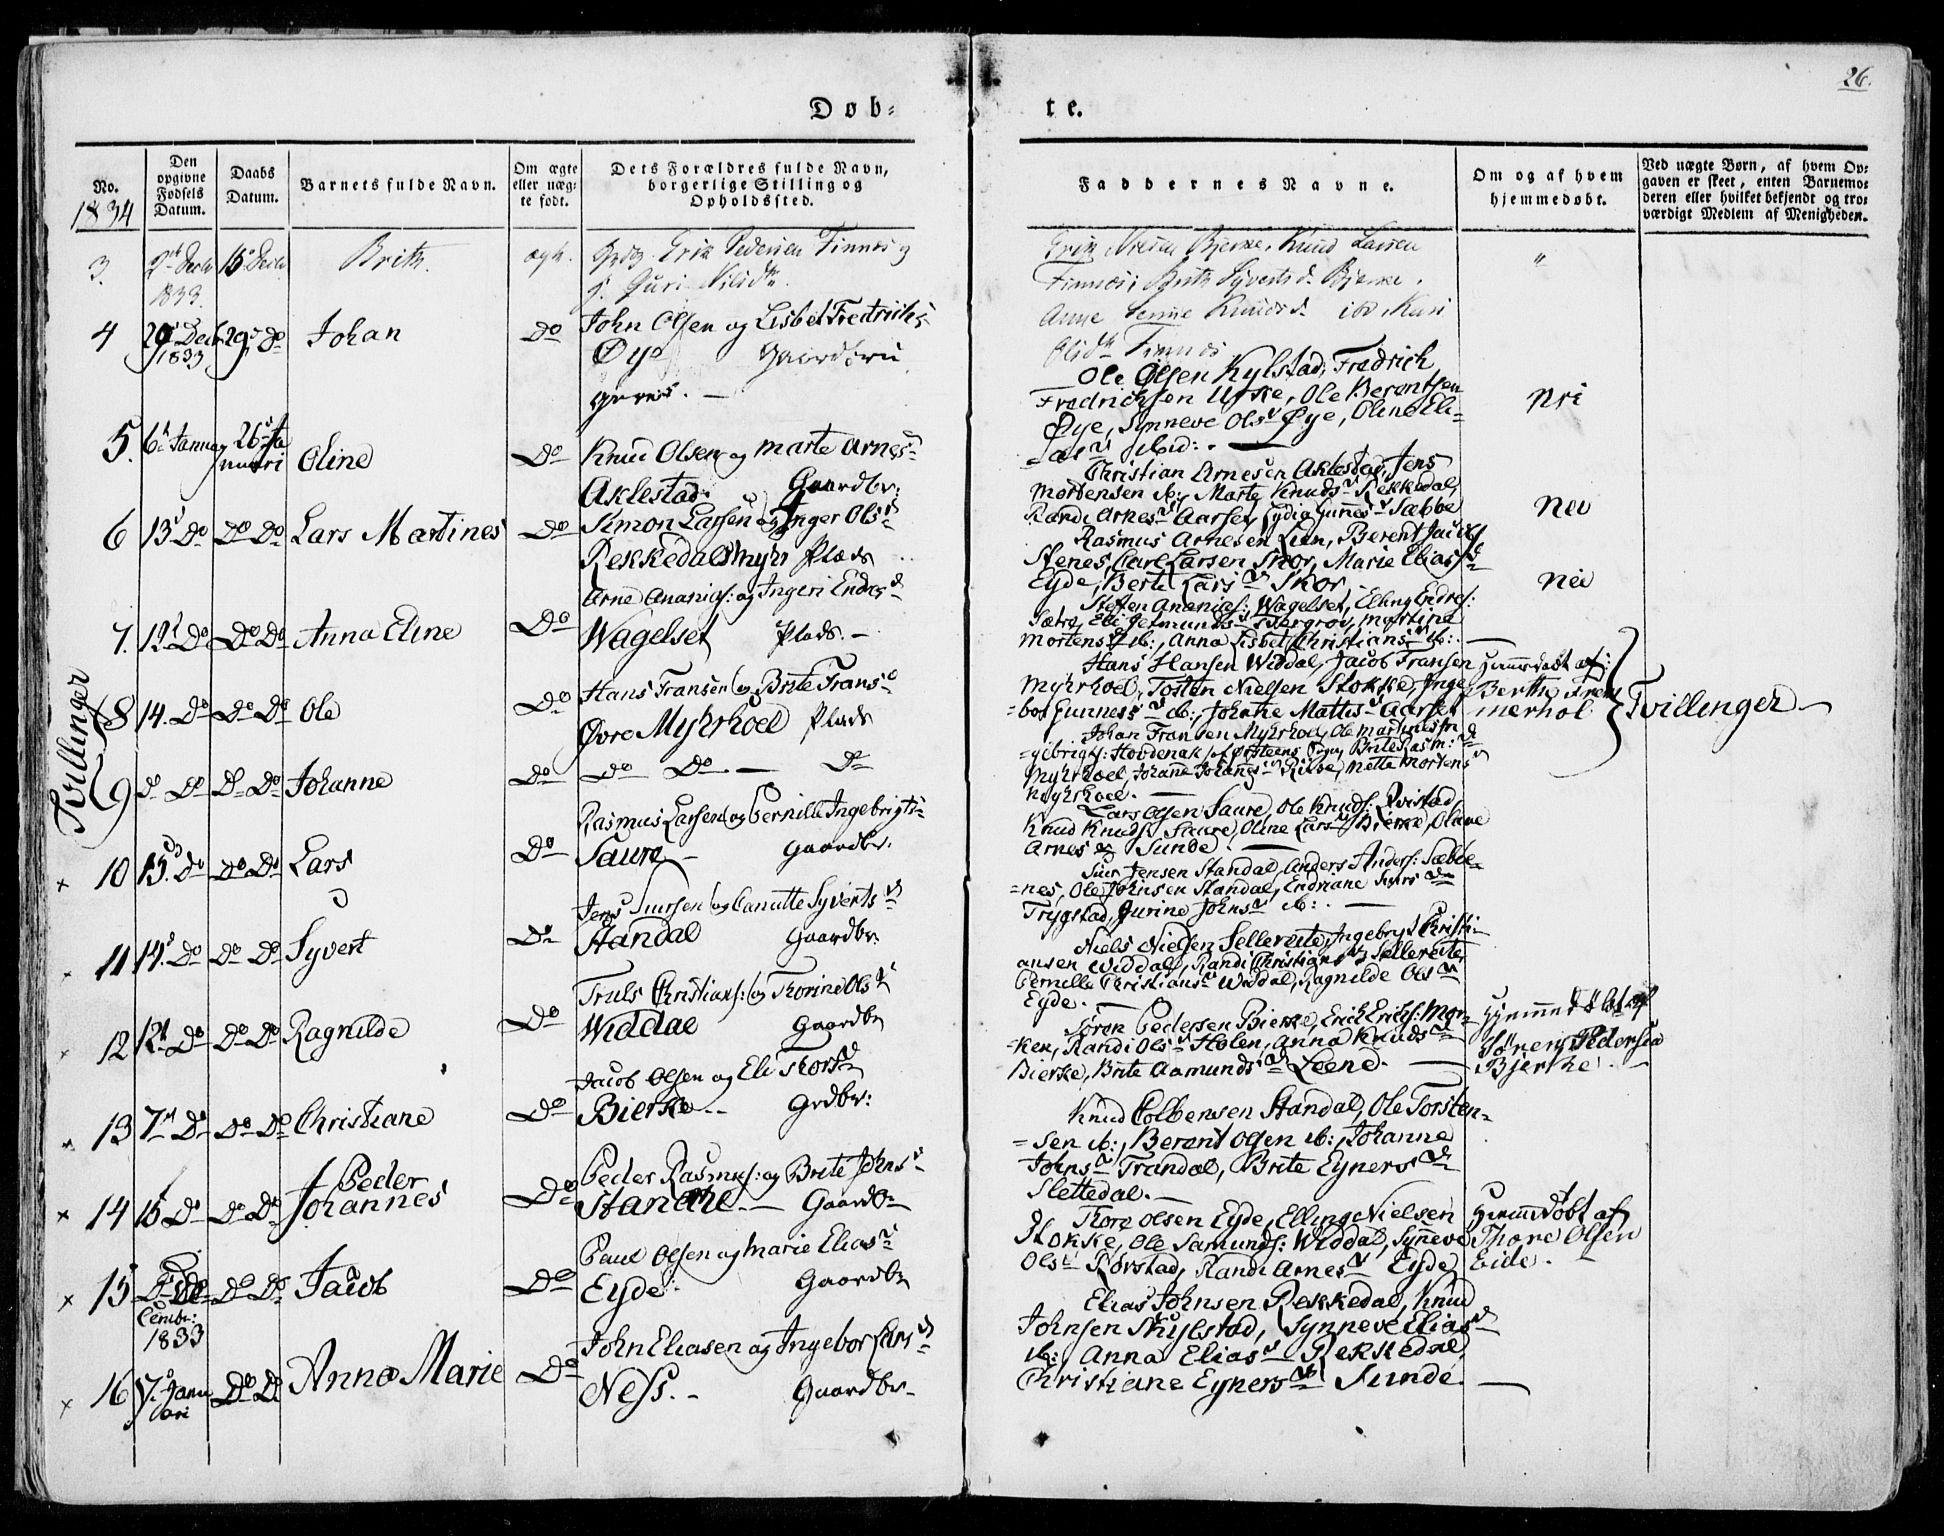 26.
Døb-
te.
No.
1834
Den
opgivne
Fødsels
Datum.
Daabs
Datum.
Barnets fulde Navn.
Om ægte
eller uæg-
te født.
Dets Forældres fulde Navn,
borgerlige Stilling og
Opholdssted.
Faddernes Navne.
Om og af hvem
hjemmedøbt.
Ved uægte Børn, af hvem Op-
gaven er skeet, enten Barnemo-
deren eller hvilket bekjendt og tro-
værdigt Medlem af Menigheden.
3.
1833.
Brite
ægte.
Erik Pedersen Finnes og
Guri
Bjerke, Knud Larsen
Finnes, Brite Syverts d. Bjerke,
Anne Knuds d. ibd, Kari
Finnes
4
29 Decb.
1833
29 do
Johan
Do
John Olsen og Lisbet Fredrichs
Øye Gaardbru
geres. —
Ole Olsen Kylstad, Fredrich
Fredrichsen Urke, Ole Berentsen
Øye, Synneve Ols d Øye, Oline Eli-
-as d ibid: . —
Nei
5.
6 Januar
26 Ja
nuari
Oline
Do
Knud Olsen og Marte Arnes d
Aklestad. Gaardbr:
Christian Arnesen Aklestad, Jens
Mortensen ib:, Marte Knuds d Rekkedal,
Randi Arnes d Aarset, Lydia Gunnes d Sæbbe
Nei
6
13 Do
Do Do
Lars Martines
Do
Simon Larsen og Inger Ols d
Rekkedalsmyhr Plads
Rasmus Arnesen Lien, Berent Jacobs
Stenes, Carl Larsen Skor, Marie Elias d
Eyde, Berte Lars d Skor
Nei
7.
12 Do
Do Do
Anna Eline
Do
Arne Ananias: og Ingeri Endres d
Wagelset Plads. —
Steffen Ananias: Wagelset, Elling Endres:
Sætre, Eli Geimunds d Bergroy, Martine
Mortens d ib:, Anna Lisbet Christians d ib:. —
Tvillinger
8
14. Do
Do Do
Ole
Do
Hans Fransen og Brite Frans d
Øvre Myhrhoel Plads
Hans Hansen Widdal, Jacob Fransen
Myhrhoel, Tosten Nielsen Stokke, Inge
-bor Gunnes d ib:, Johane Mattis d Aarset
Hjemmedøbt af:
Berthe Frem
merhol
Tvillinger —
9
d Do
D Do
Johanne
Do
Do Do — Do
Johan Fransen Myhrhoel, Ole Martines In
-gebrigts: Hovdenak, Brite Rasm: d
Myhrhoel, Johane Johans d Riise, Mette Mortens d
Myhrhoel. —
10
15. Do
Do Do
Lars
Do
Rasmus Larsen og Pernille Ingebrigts
Saure — Gaardbr.
Lars Olsen Saure, Ole Knuds: Qvistad,
Knud Knuds: Saure, Oline Lars d Bierke, Olane
Arnes d Sunde. —
11
14. Do
Do Do
Syvert
Do
Jens Siursen og Canutte Syverts d
Standal Gaardbr:
Siur Jensen Standal, Anders Anders: Sæbbe-
=nes, Ole Johnsen Standal, Endriane Siurs d
Trygstad, Gurine Johns d ib: . —
12
12 Do
Do Do
Ragnilde
Do
Truls Christians: og Thorine Ols d
Widdal Gaardbr
Niels Nielsen Sellereite, Ingebrygt Christi-
ansen Widdal, Randi Christians d Sellereite,
Pernille Christians d Widdal, Ragnilde Ols d
Eyde. —
13
7 Do
Do Do
Christiane
Do
Jacob Olsen og Eli Thors d
Bierke. — Grdbr:
Søren Pedersen Bierke, Erich Erichs: Mor-
-ken, Randi Ols d Holen, Anna Knuds d
Bierke, Brite Aamunds d Leene. —
Hjemmedøbt af
Søren Pedersen
Bjerke. —
14
15 Do
Do Do
Peder
Johannes
Do
Peder Rasmus: og Brite Johns d
Standal. — Gaardbr
Knud Colbensen Standal, Ole Torsten-
=sen ib:, Berent Olsen ib:, Johanne
Johns d Trandal, Brite Eyners d
Slettedal. —
15
Cembr:
1833
Do Do
Jacob
Do
Paul Olsen og Marie Elias d
Eyde: Gaardbr
Thore Olsen Eyde, Elling Nielsen
Stokke, Ole Samunds: Widdal, Synneve
Ols d Rørstad, Randi Arnes d Eyde
Hjemmedøbt af
Thore Olsen
Eide. —
16
7. Janu
ari
Do D
Anna Marie
Do
John Eliasen og Ingebor Lars d
Ness. — Gaardbr
Elias Johnsen Rekkedal, Knud
Johnsen Skylstad, Synneve Elias d
ib:, Anna Elias d Rekkedal,
Christiane Eyners d Sunde. —